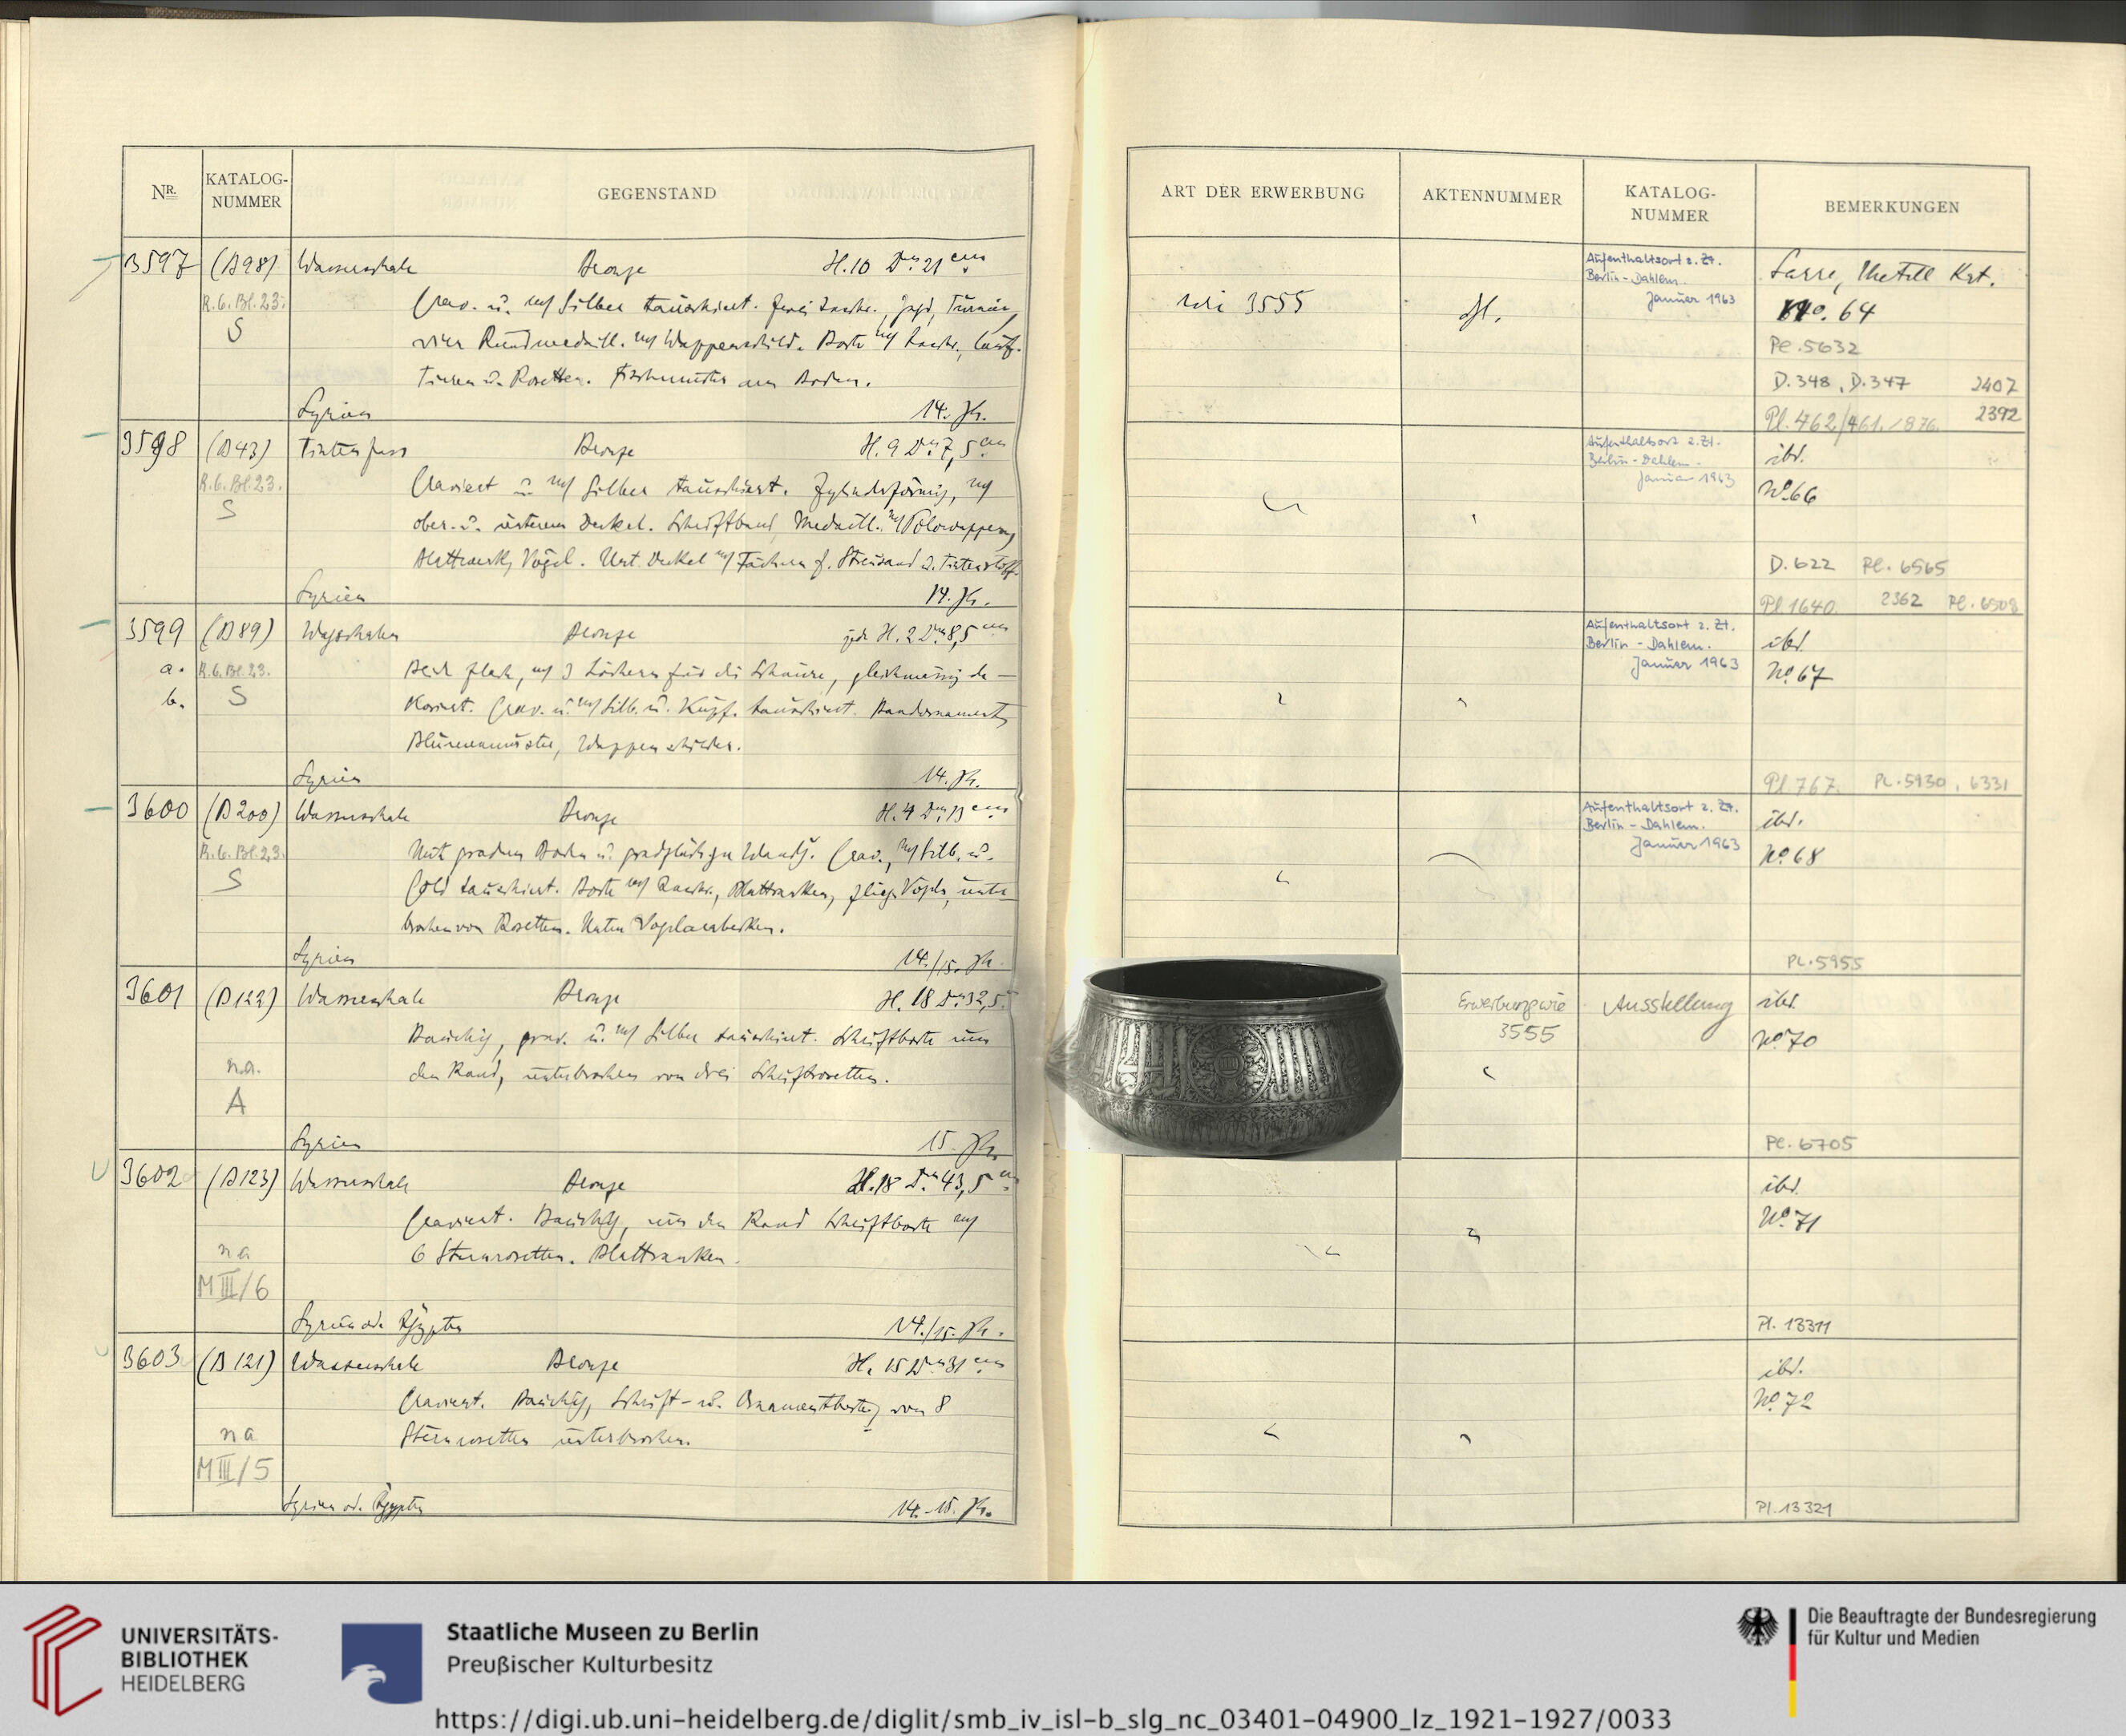 NR. KATALOG-NUMMER GEGENSTAND
3597 (B98) Wasserschale Bronze H. 10 Dm. 21 cm
R.6.Bl.23. Grav. u. m/ Silber tauschiert.
S vier Rundmedaill. m/ Wappenschild.
Tieren u. Rosetten. Fischmuster am Boden.
Syrien 14. Jh.
3598 (B43) Tintenfass Bronze H. 9 Dm. 7,5 cm
R.6.Bl.23. Graviert u. m/ Silber tauschiert. Zylinderförmig, m/
S ober. u. unterem Deckel. Schriftband, Medaill. m/ Polowappen,
Blattwerk, Vögel. Unt. Deckel m/ Fächern f. Streusand u. Tintenstoff.
Syrien 14. Jh.
3599 (B89) Wagschalen Bronze jede H. 2 Dm. 8,5 cm
a. R.6.Bl.23. Sehr flach, m/ 3 Löchern für die Schnüre, gleichmässig de-
b. S koriert. Grav. u. m/ Silb. u. Kupf. tauschiert. Bandornament,
Blumenmuster, Wappenschilder.
Syrien 14. Jh.
3600 (B200) Wasserschale Bronze H. 4 Dm. 13 cm
R.6.Bl.23. Mit gradem Boden u. Grav., m/ Silb. u.
S Gold tauschiert. Borte m/ Blattranken, flieg. Vögeln, unter-
brochen von Rosetten. Unten
Syrien 14./15. Jh.
3601 (B122) Wasserschale Bronze H. 18 Dm. 32,5
Bauchig, grav. u. m/ Silber tauschiert. Schriftborte um
n.a. den Rand, unterbrochen von drei Schriftrosetten.
A
Syrien 15. Jh.
3602 (B123) Wasserschale Bronze H. 18 Dm. 43,5 cm
Graviert. Bauchig, um den Rand Schriftborte m/
na 6 Sternrosetten. Blattranken.
M III/6
Syrien od. Ägypten 14./15. Jh.
3603 (B121) Wasserschale Bronze H. 15 Dm. 31 cm
Graviert. Bauchig, Schrift- u. Ornamentborte, von 8
na Sternrosetten unterbrochen.
M III/5
Syrien od. Ägypten 14.-15. Jh.
ART DER ERWERBUNG AKTENNUMMER KATALOG-NUMMER BEMERKUNGEN
Aufenthaltsort z. Zt. Sarre, Metall Kat.
Berlin-Dahlem.
wie 3555 Januar 1963 No. 64
Pl. 5632
D.348, D.347 2407
Pl. 462/461./876. 2392
Aufenthaltsort z. Zt. ibd.
Berlin-Dahlem.
Januar 1963 No. 66
D.622 Pl. 6565
Pl 1640. 2362 Pl. 6508
Aufenthaltsort z. Zt. ibd.
Berlin-Dahlem.
Januar 1963 No. 67
Pl 767. Pl. 5930, 6331
Aufenthaltsort z. Zt. ibd.
Berlin-Dahlem.
Januar 1963 No. 68
Pl. 5955
Erwerbung wie Ausstellung ibd.
3555 No. 70
Pl. 6705
ibd.
No. 71
Pl. 13311
ibd.
No. 72
Pl. 13321
UNIVERSITÄTS-
BIBLIOTHEK
HEIDELBERG
Staatliche Museen zu Berlin
Preußischer Kulturbesitz
Die Beauftragte der Bundesregierung
für Kultur und Medien
https://digi.ub.uni-heidelberg.de/diglit/smb_iv_isl-b_slg_nc_03401-04900_lz_1921-1927/0033